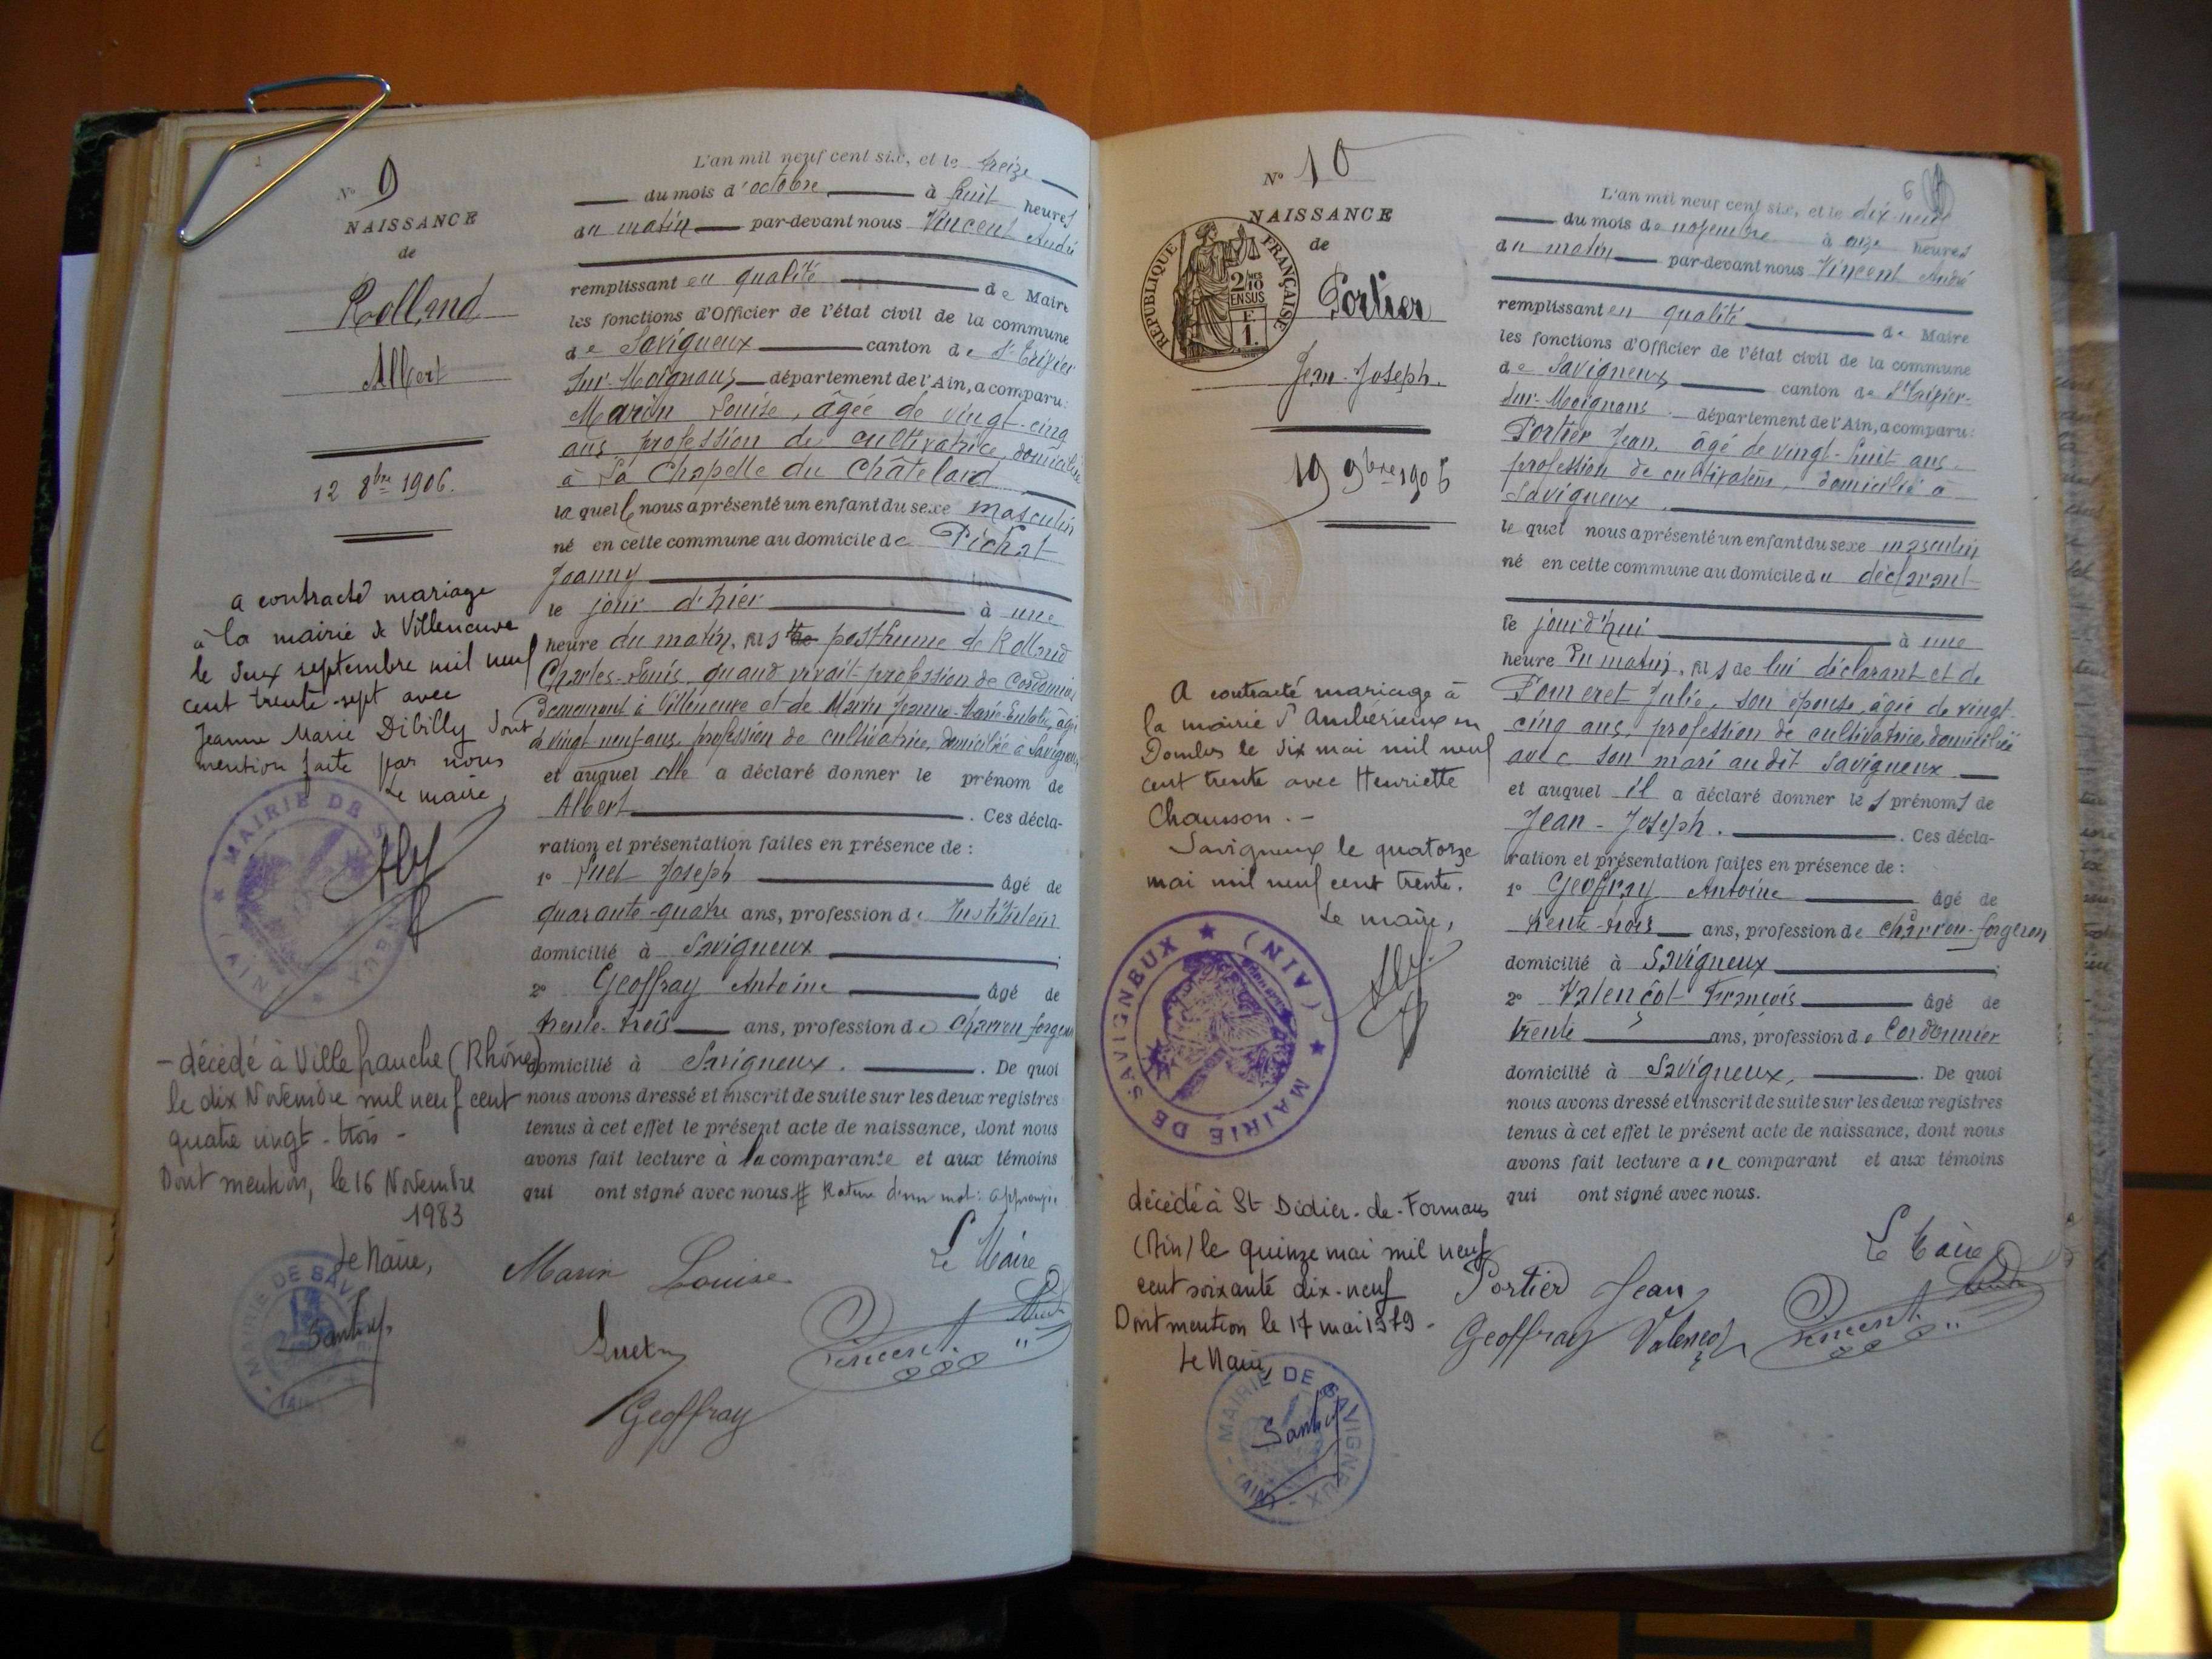 N° 9
NAISSANCE
de
Rolland
Albert
12 8bre 1906.
a contracté mariage
à la mairie de Villeneuve
le deux septembre mil neuf
cent trente-sept avec
Jeanne Marie Dibilly dont
mention faite par nous
Le maire,
MAIRIE DE SAVIGNEUX (AIN)
- décédé à Villefranche (Rhône)
le dix Novembre mil neuf cent
quatre vingt-trois -
Dont mention, le 16 Novembre
1983
Le Maire,
MAIRIE DE SAVIGNEUX (AIN)
L'an mil neuf cent six, et le treize
du mois d'octobre à huit heures
du matin par-devant nous Vincent André
remplissant en qualité de Maire
les fonctions d'Officier de l'état civil de la commune
de Savigneux canton de St Trivier
sur-Moignans département de l'Ain, a comparu:
Marin Louise, âgée de vingt-cinq
ans, profession de cultivatrice, domiciliée
à La Chapelle du Châtelard
laquelle nous a présenté un enfant du sexe masculin
né en cette commune au domicile de Pichat
Joanny
le jour d'hier à une
heure du matin, fils posthume de Rolland
Charles-Louis, quand vivait profession de Cordonnier
demeurant à Villeneuve et de Marin Jeanne-Marie-Eulalie, âgée
de vingt neuf ans, profession de cultivatrice, domiciliée à Savigneux
et auquel elle a déclaré donner le prénom de
Albert. Ces décla-
ration et présentation faites en présence de :
1° Suet Joseph âgé de
quarante-quatre ans, profession d'Instituteur
domicilié à Savigneux;
2° Geoffray Antoine âgé de
trente-trois ans, profession de Charron forgeron
domicilié à Savigneux. De quoi
nous avons dressé et inscrit de suite sur les deux registres
tenus à cet effet le présent acte de naissance, dont nous
avons fait lecture à la comparante et aux témoins
qui ont signé avec nous. # Rature d'un mot: approuvée
Marin Louise
Le Maire
Suet
Vincent André
Geoffray
N° 10
NAISSANCE
de
REPUBLIQUE FRANÇAISE
2/10 EN SUS
F. 1.
Portier
Jean-Joseph.
19 9bre 1906
A contracté mariage à
la mairie d'Ambérieux en
Dombes le dix mai mil neuf
cent trente avec Henriette
Chausson. -
Savigneux le quatorze
mai mil neuf cent trente.
Le maire,
MAIRIE DE SAVIGNEUX (AIN)
décédé à St Didier-de-Formans
(Ain) le quinze mai mil neuf
cent soixante dix-neuf
Dont mention le 17 mai 1979 -
Le Maire,
MAIRIE DE SAVIGNEUX (AIN)
6
L'an mil neuf cent six, et le dix-neuf
du mois de novembre à onze heures
du matin par-devant nous Vincent André
remplissant en qualité de Maire
les fonctions d'Officier de l'état civil de la commune
de Savigneux canton de St Trivier-
sur-Moignans département de l'Ain, a comparu:
Portier Jean, âgé de vingt-huit ans,
profession de cultivateur, domicilié à
Savigneux.
lequel nous a présenté un enfant du sexe masculin
né en cette commune au domicile du déclarant
le jourd'hui à une
heure du matin, fils de lui déclarant et de
Pomeret Julie, son épouse, âgée de vingt
cinq ans, profession de cultivatrice, domiciliée
avec son mari audit Savigneux
et auquel il a déclaré donner les prénoms de
Jean-Joseph. Ces décla-
ration et présentation faites en présence de :
1° Geoffray Antoine âgé de
trente-trois ans, profession de charron-forgeron
domicilié à Savigneux;
2° Valençot François âgé de
trente ans, profession de Cordonnier
domicilié à Savigneux. De quoi
nous avons dressé et inscrit de suite sur les deux registres
tenus à cet effet le présent acte de naissance, dont nous
avons fait lecture au comparant et aux témoins
qui ont signé avec nous.
Le Maire
Portier Jean
Geoffray Valençot Vincent André